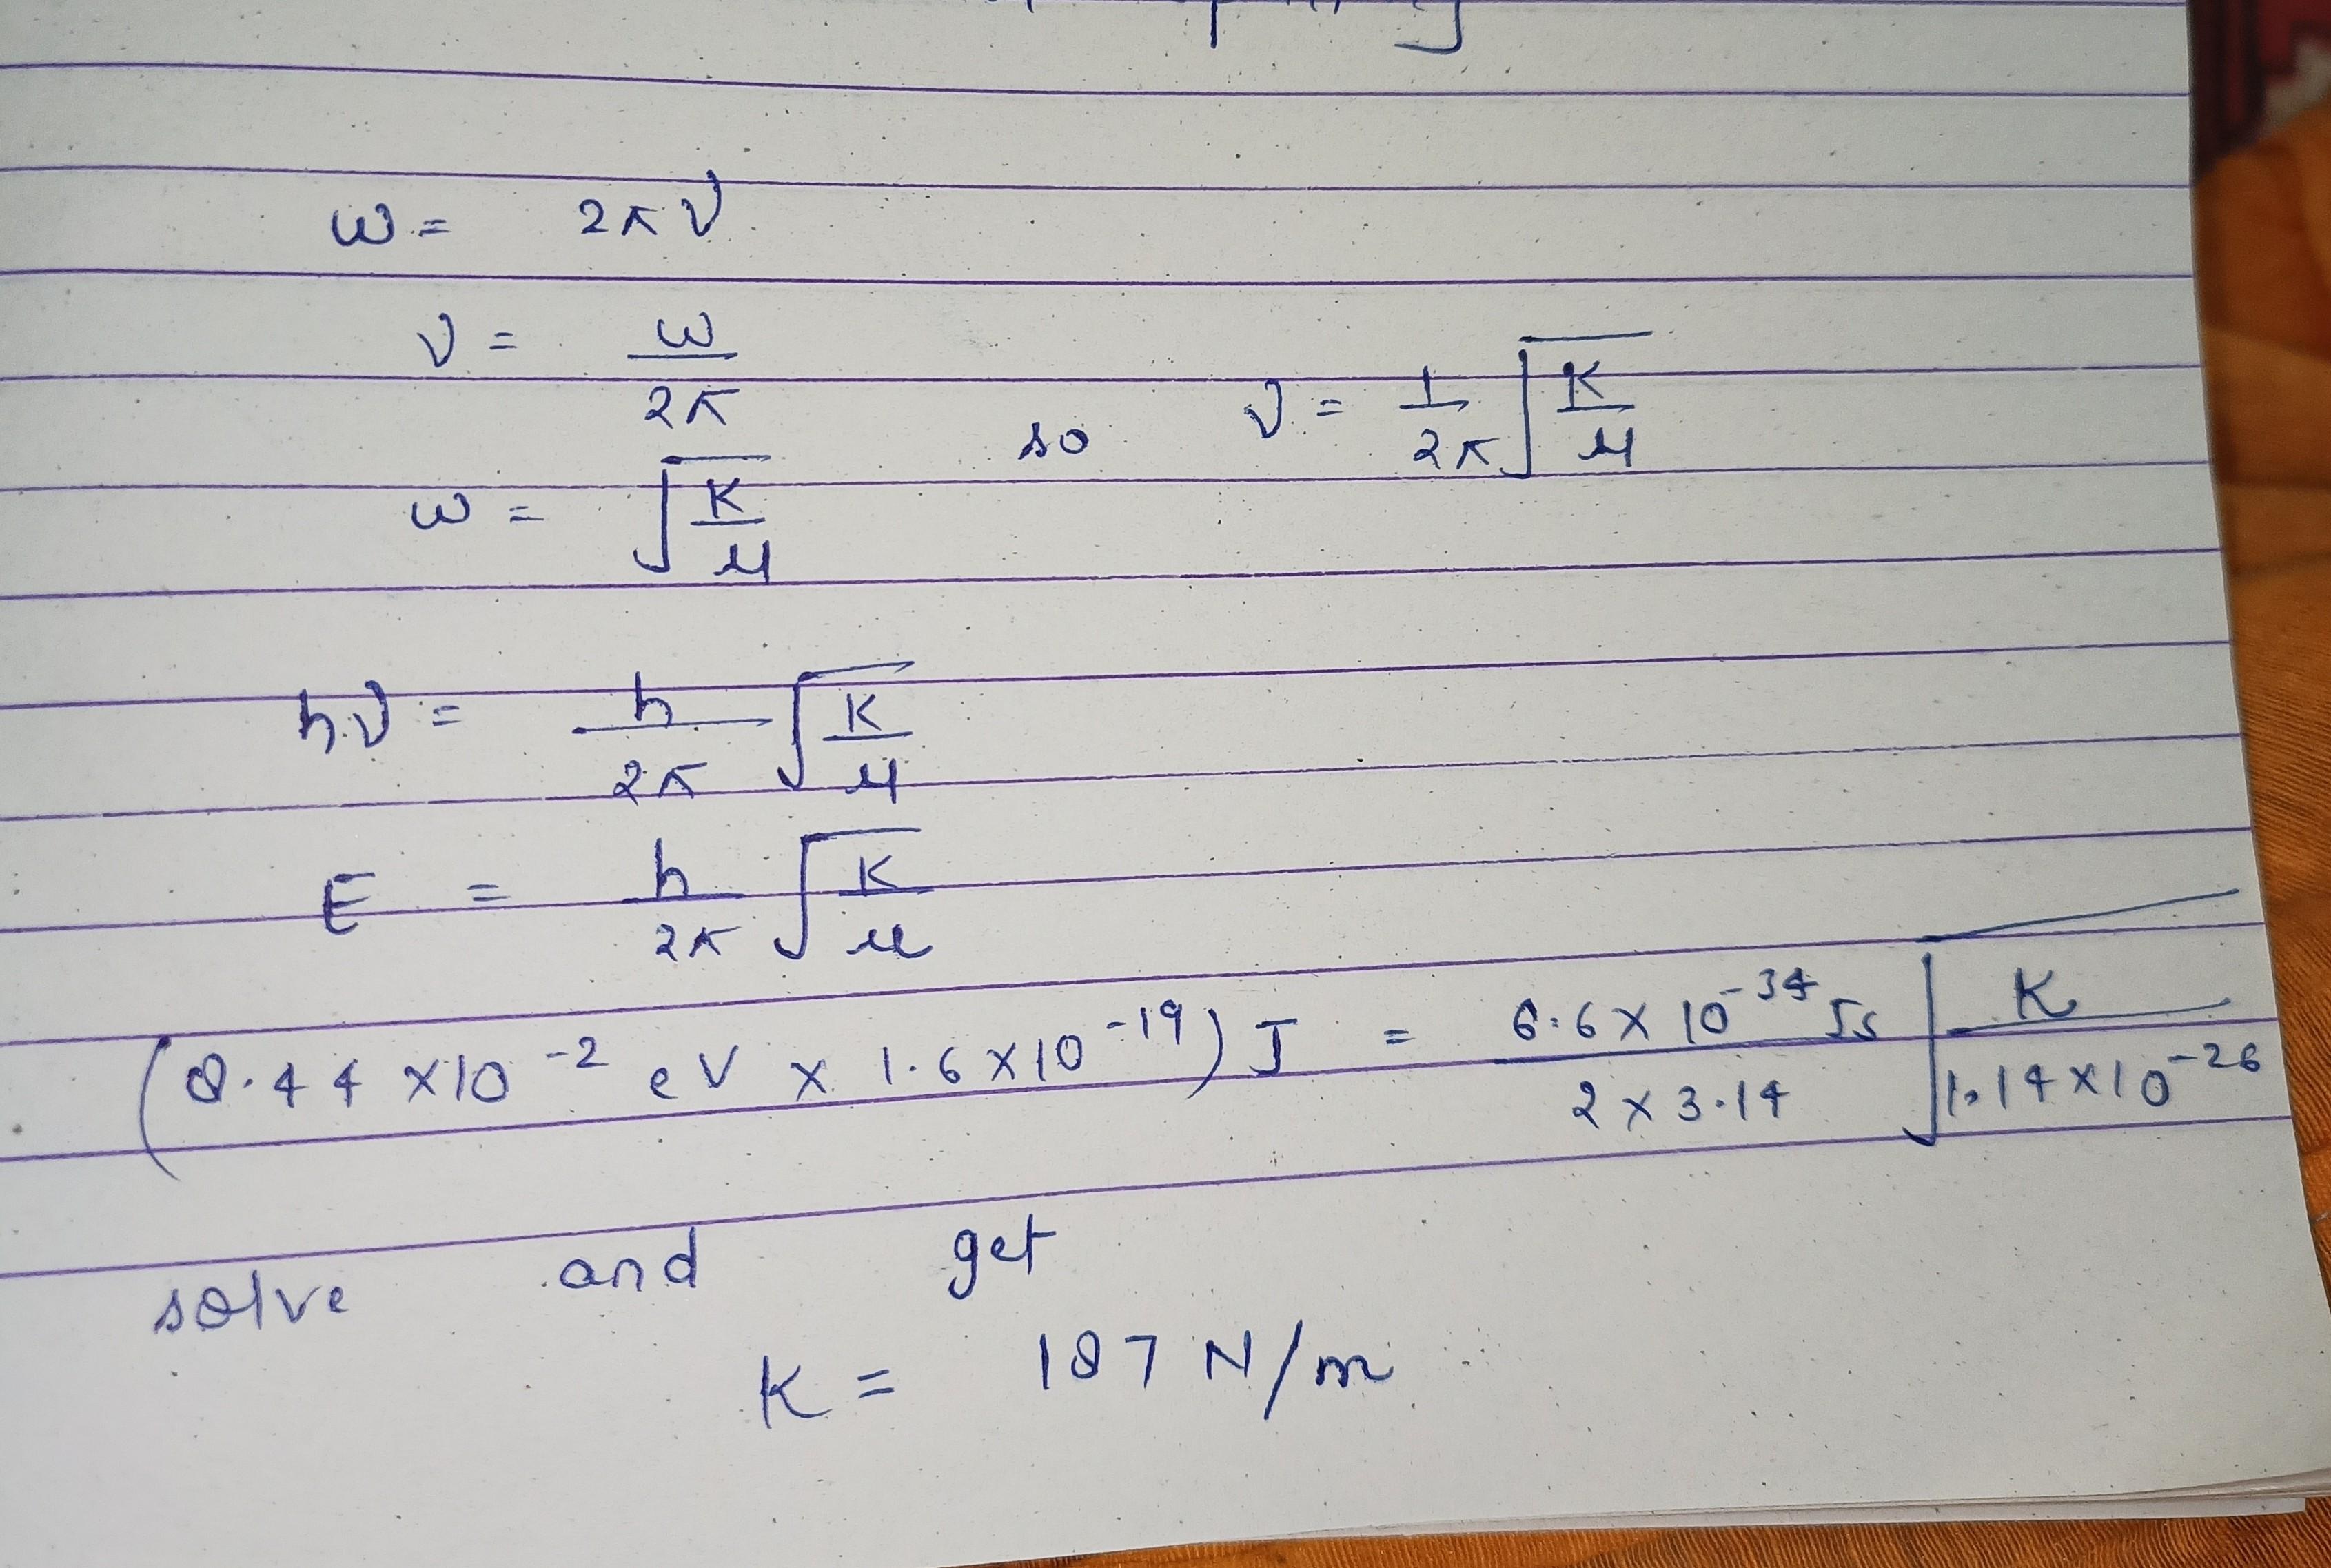 ω = 2πν
ν = ω/2π
so ν = 1/2π √(K/μ)
ω = √(K/μ)
hν = h/2π √(K/μ)
E = h/2π √(K/μ)
(8.44 × 10⁻² eV × 1.6 × 10⁻¹⁹) J = 6.6 × 10⁻³⁴ Js / 2 × 3.14 √(K / 1.14 × 10⁻²⁶)
solve and get
K = 187 N/m